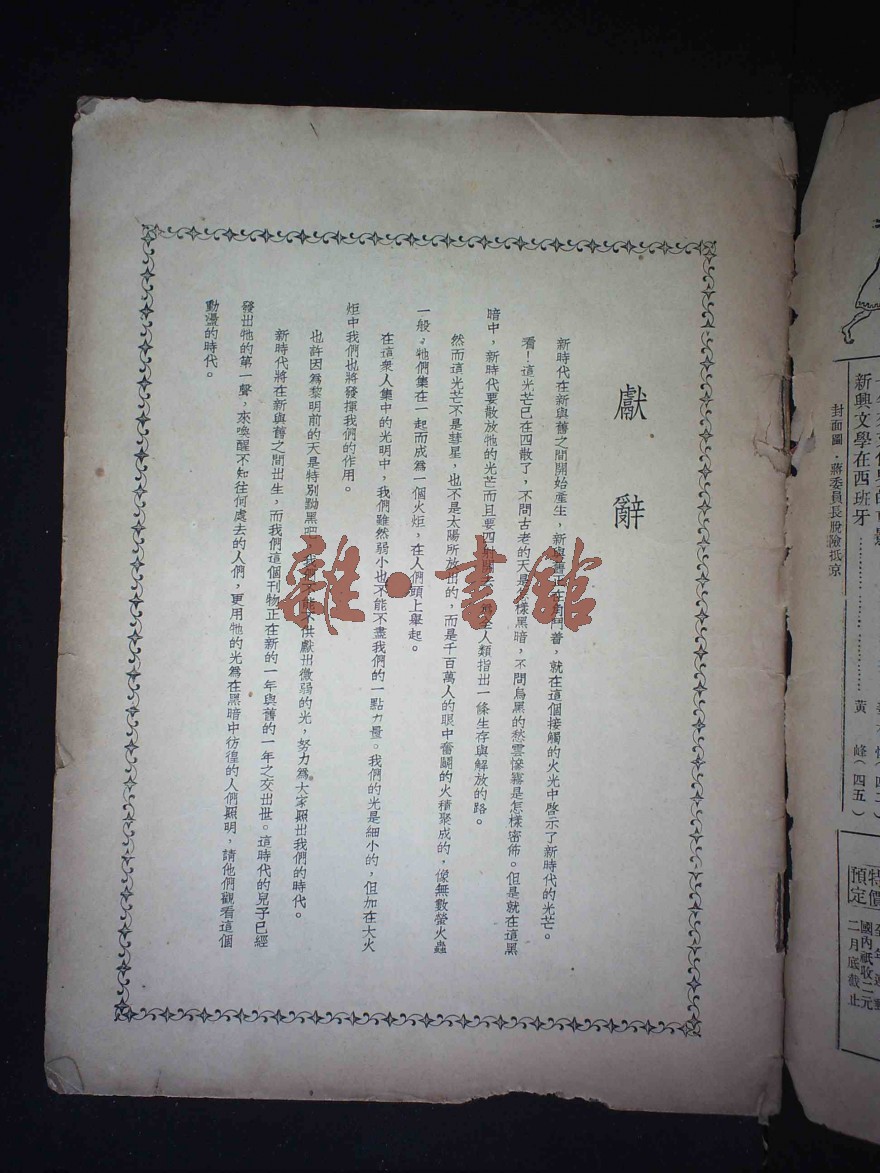 獻辭
新時代在新與舊之間開始產生，新與舊正在角鬥着，就在這個接觸的火光中啓示了新時代的光芒。
看！這光芒已在四散了，不問古老的天是怎樣黑暗，不問烏黑的愁雲慘霧是怎樣密佈。但是就在這黑
暗中，新時代要散放牠的光芒而且要四射開去，全人類指出一條生存與解放的路。
然而這光芒不是彗星，也不是太陽所放出的，而是千百萬人的眼中奮鬬的火積聚成的，像無數螢火蟲
一般。牠們集在一起而成爲一個火炬，在人們頭上舉起。
在這衆人集中的光明中，我們雖然弱小也不能不盡我們的一點力量。我們的光是細小的，但加在大火
炬中我們也將發揮我們的作用。
也許因爲黎明前的天是特別黝黑吧，我們不能不供獻出微弱的光，努力爲大家照出我們的時代。
新時代將在新與舊之間出生，而我們這個刊物正在新的一年與舊的一年之交出世。這時代的兒子已經
發出牠的第一聲，來喚醒不知往何處去的人們，更用牠的光爲在黑暗中彷徨的人們照明，請他們觀看這個
動盪的時代。
雜·書館
新興文學在西班牙……黃峰（四五）
封面圖·蔣委員長脫險抵京
特價
預定
國內祇收二元
二月底截止